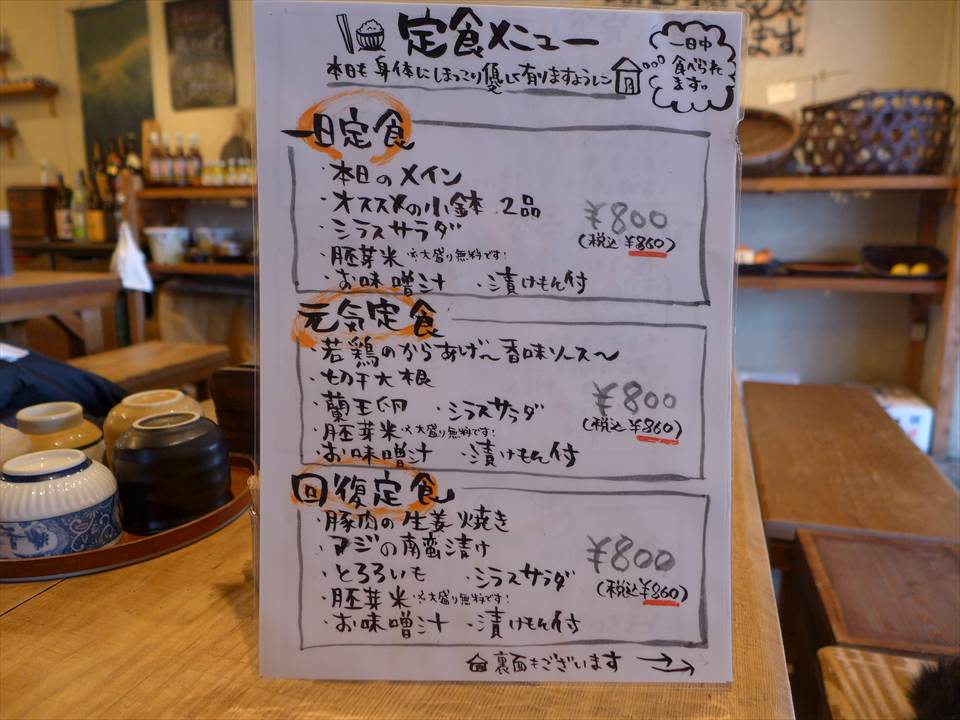 定食メニュー
本日も身体にほっこり優しく有りますように
一日中
食べられ
ます。
一日定食
・本日のメイン
・オススメの小鉢 2品
・シラスサラダ
・胚芽米 ※大盛り無料です!
・お味噌汁 ・漬けもん付
¥800
(税込 ¥860)
元気定食
・若鶏のからあげ~香味ソース~
・切干大根
・蘭王卵 ・シラスサラダ
・胚芽米 ※大盛り無料です!
・お味噌汁 ・漬けもん付
¥800
(税込 ¥860)
回復定食
・豚肉の生姜焼き
・アジの南蛮漬け
・とろろいも ・シラスサラダ
・胚芽米 ※大盛り無料です!
・お味噌汁 ・漬けもん付
¥800
(税込 ¥860)
裏面もございます